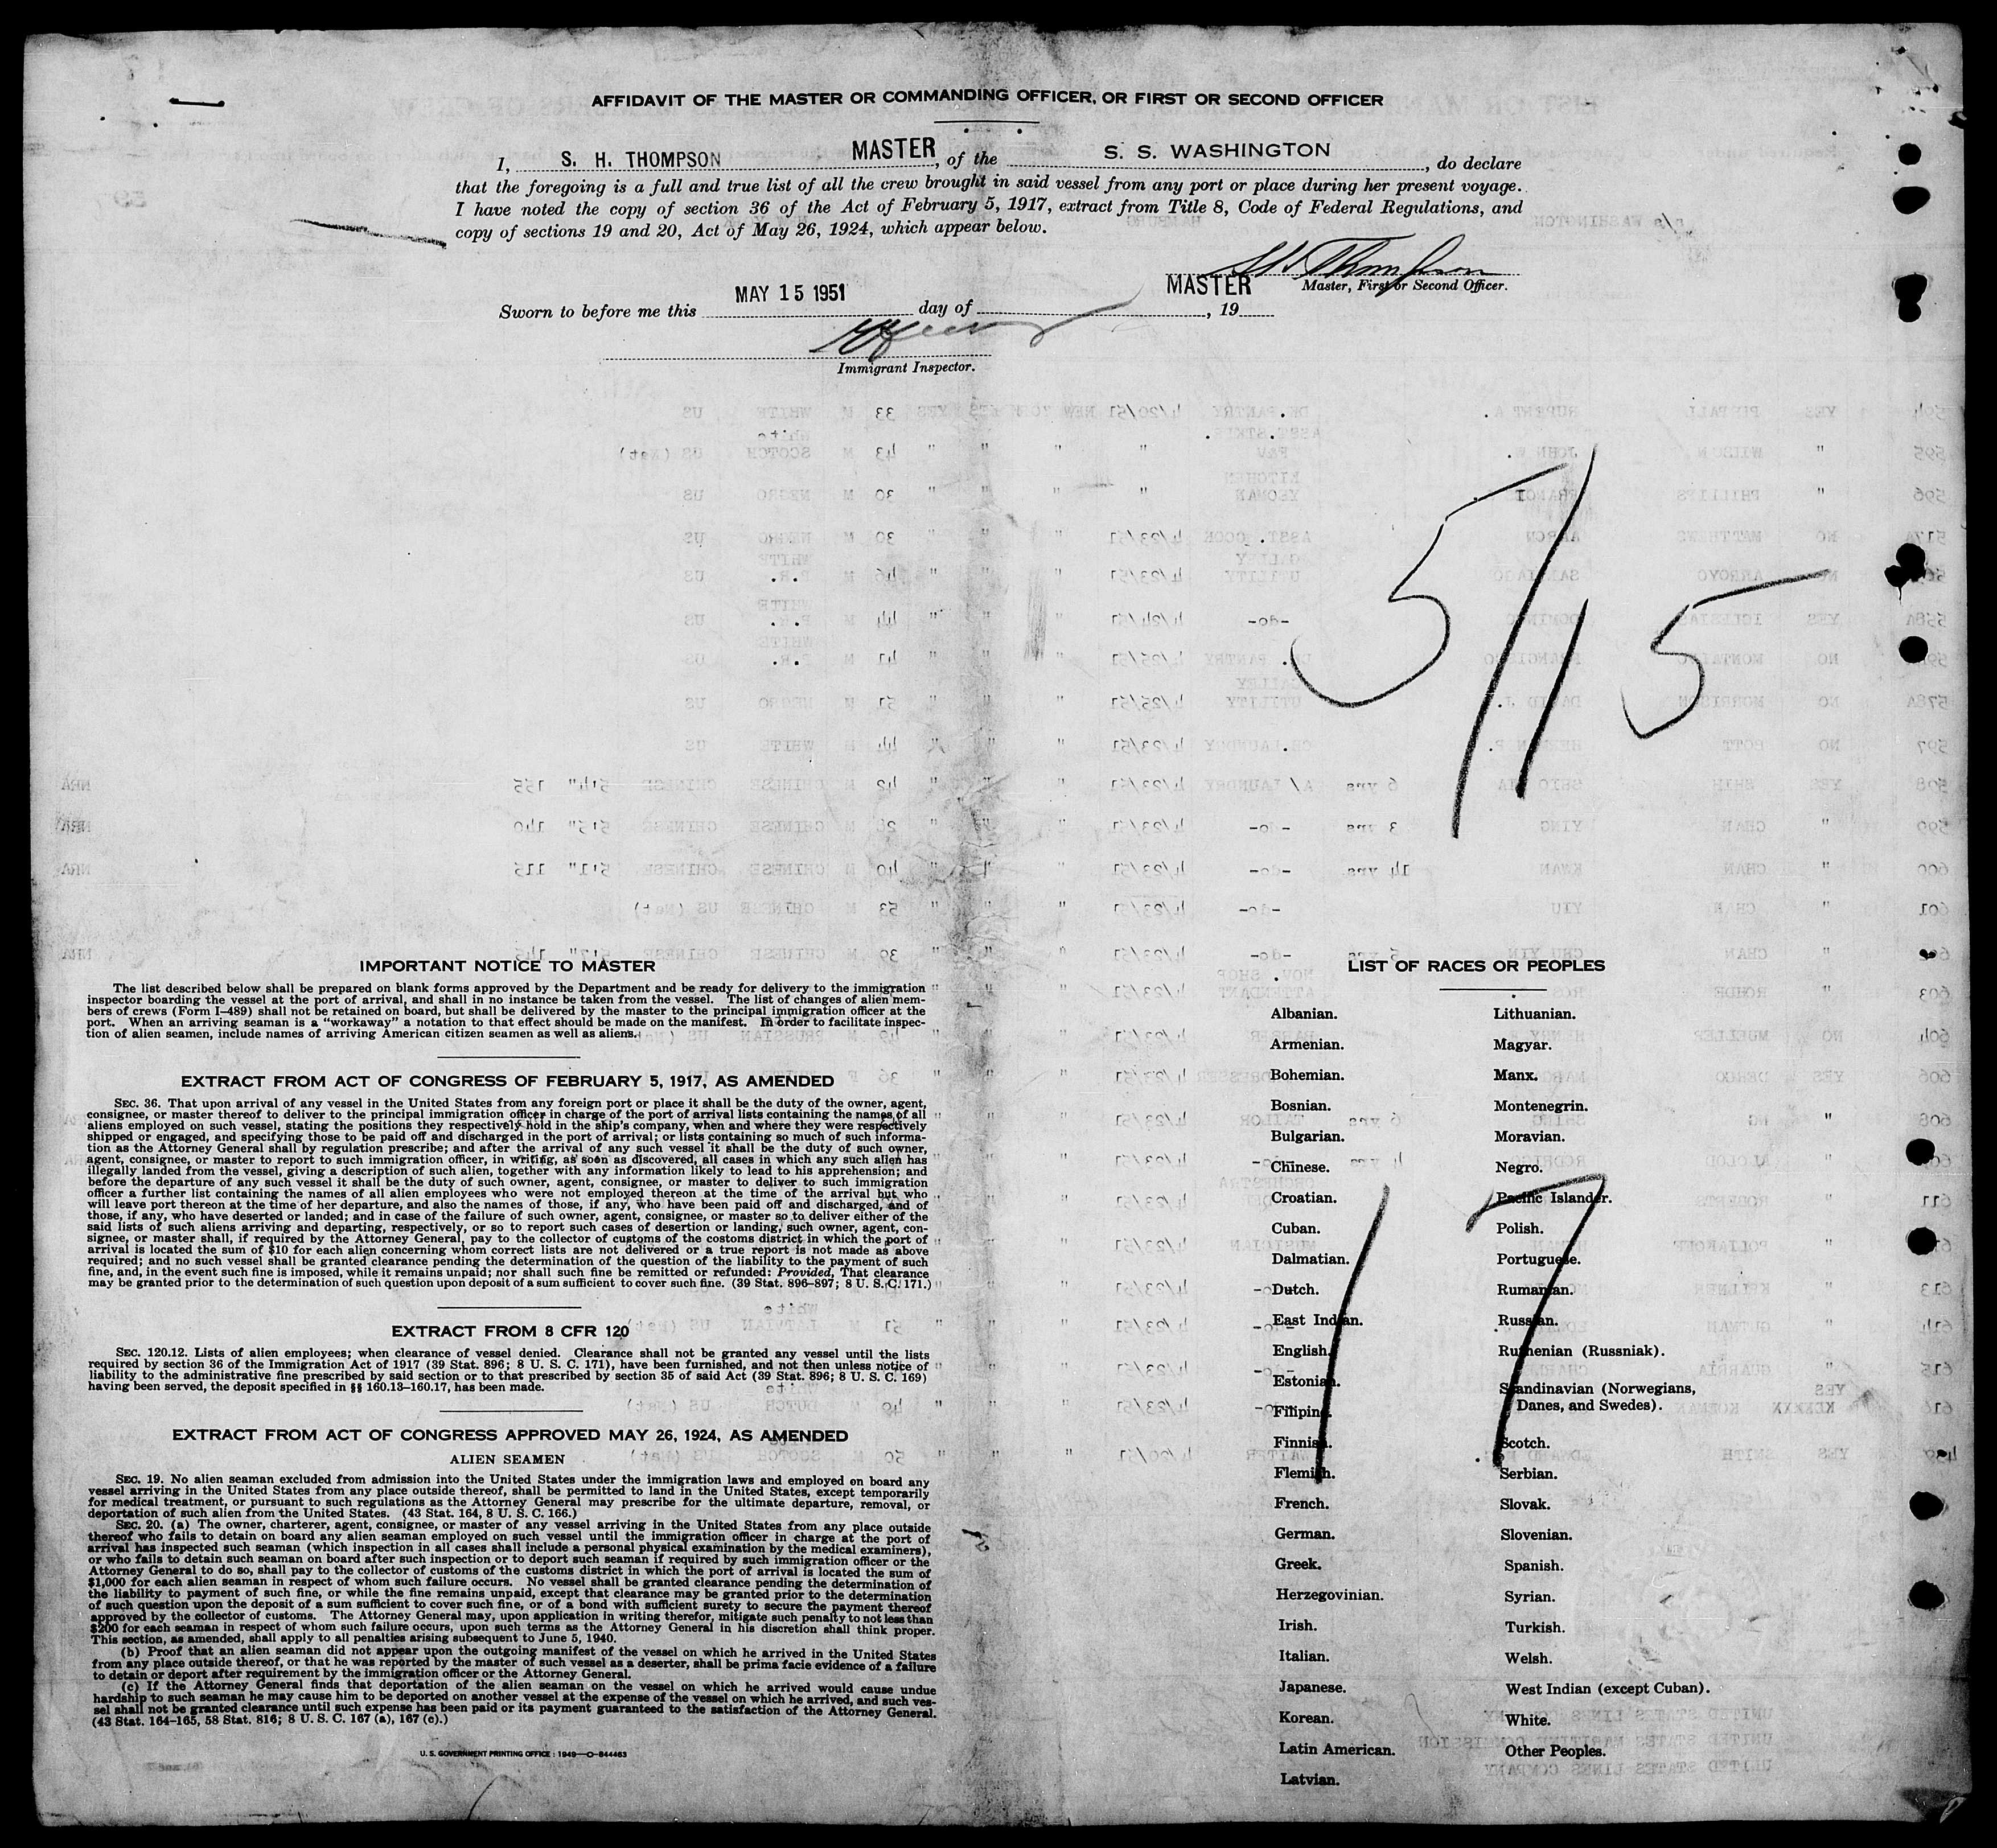 AFFIDAVIT OF THE MASTER OR COMMANDING OFFICER, OR FIRST OR SECOND OFFICER
I, S. H. THOMPSON MASTER, of the S. S. WASHINGTON, do declare
that the foregoing is a full and true list of all the crew brought in said vessel from any port or place during her present voyage.
I have noted the copy of section 36 of the Act of February 5, 1917, extract from Title 8, Code of Federal Regulations, and
copy of sections 19 and 20, Act of May 26, 1924, which appear below.
MASTER Master, First or Second Officer.
Sworn to before me this MAY 15 1951 day of , 19
Immigrant Inspector.
5/15
IMPORTANT NOTICE TO MASTER
The list described below shall be prepared on blank forms approved by the Department and be ready for delivery to the immigration
inspector boarding the vessel at the port of arrival, and shall in no instance be taken from the vessel. The list of changes of alien mem-
bers of crews (Form I-489) shall not be retained on board, but shall be delivered by the master to the principal immigration officer at the
port. When an arriving seaman is a "workaway" a notation to that effect should be made on the manifest. In order to facilitate inspec-
tion of alien seamen, include names of arriving American citizen seamen as well as aliens.
EXTRACT FROM ACT OF CONGRESS OF FEBRUARY 5, 1917, AS AMENDED
SEC. 36. That upon arrival of any vessel in the United States from any foreign port or place it shall be the duty of the owner, agent,
consignee, or master thereof to deliver to the principal immigration officer in charge of the port of arrival lists containing the names of all
aliens employed on such vessel, stating the positions they respectively hold in the ship's company, when and where they were respectively
shipped or engaged, and specifying those to be paid off and discharged in the port of arrival; or lists containing so much of such informa-
tion as the Attorney General shall by regulation prescribe; and after the arrival of any such vessel it shall be the duty of such owner,
agent, consignee, or master to report to such immigration officer, in writing, as soon as discovered, all cases in which any such alien has
illegally landed from the vessel, giving a description of such alien, together with any information likely to lead to his apprehension; and
before the departure of any such vessel it shall be the duty of such owner, agent, consignee, or master to deliver to such immigration
officer a further list containing the names of all alien employees who were not employed thereon at the time of the arrival but who
will leave port thereon at the time of her departure, and also the names of those, if any, who have been paid off and discharged, and of
those, if any, who have deserted or landed; and in case of the failure of such owner, agent, consignee, or master so to deliver either of the
said lists of such aliens arriving and departing, respectively, or so to report such cases of desertion or landing, such owner, agent, con-
signee, or master, shall, if required by the Attorney General, pay to the collector of customs of the customs district in which the port of
arrival is located the sum of $10 for each alien concerning whom correct lists are not delivered or a true report is not made as above
required; and no such vessel shall be granted clearance pending the determination of the question of the liability to the payment of such
fine, and, in the event such fine is imposed, while it remains unpaid; nor shall such fine be remitted or refunded: Provided, That clearance
may be granted prior to the determination of such question upon deposit of a sum sufficient to cover such fine. (39 Stat. 896-897; 8 U. S. C. 171.)
EXTRACT FROM 8 CFR 120
SEC. 120.12. Lists of alien employees; when clearance of vessel denied. Clearance shall not be granted any vessel until the lists
required by section 36 of the Immigration Act of 1917 (39 Stat. 896; 8 U. S. C. 171), have been furnished, and not then unless notice of
liability to the administrative fine prescribed by said section or to that prescribed by section 35 of said Act (39 Stat. 896; 8 U. S. C. 169)
having been served, the deposit specified in §§ 160.13-160.17, has been made.
EXTRACT FROM ACT OF CONGRESS APPROVED MAY 26, 1924, AS AMENDED
ALIEN SEAMEN
SEC. 19. No alien seaman excluded from admission into the United States under the immigration laws and employed on board any
vessel arriving in the United States from any place outside thereof, shall be permitted to land in the United States, except temporarily
for medical treatment, or pursuant to such regulations as the Attorney General may prescribe for the ultimate departure, removal, or
deportation of such alien from the United States. (43 Stat. 164, 8 U. S. C. 166.)
SEC. 20. (a) The owner, charterer, agent, consignee, or master of any vessel arriving in the United States from any place outside
thereof who fails to detain on board any alien seaman employed on such vessel until the immigration officer in charge at the port of
arrival has inspected such seaman (which inspection in all cases shall include a personal physical examination by the medical examiners),
or who fails to detain such seaman on board after such inspection or to deport such seaman if required by such immigration officer or the
Attorney General to do so, shall pay to the collector of customs of the customs district in which the port of arrival is located the sum of
$1,000 for each alien seaman in respect of whom such failure occurs. No vessel shall be granted clearance pending the determination of
the liability to payment of such fine, or while the fine remains unpaid, except that clearance may be granted prior to the determination
of such question upon the deposit of a sum sufficient to cover such fine, or of a bond with sufficient surety to secure the payment thereof
approved by the collector of customs. The Attorney General may, upon application in writing therefor, mitigate such penalty to not less than
$200 for each seaman in respect of whom such failure occurs, upon such terms as the Attorney General in his discretion shall think proper.
This section, as amended, shall apply to all penalties arising subsequent to June 5, 1940.
(b) Proof that an alien seaman did not appear upon the outgoing manifest of the vessel on which he arrived in the United States
from any place outside thereof, or that he was reported by the master of such vessel as a deserter, shall be prima facie evidence of a failure
to detain or deport after requirement by the immigration officer or the Attorney General.
(c) If the Attorney General finds that deportation of the alien seaman on the vessel on which he arrived would cause undue
hardship to such seaman he may cause him to be deported on another vessel at the expense of the vessel on which he arrived, and such ves-
sel shall not be granted clearance until such expense has been paid or its payment guaranteed to the satisfaction of the Attorney General.
(43 Stat. 164-165, 58 Stat. 816; 8 U. S. C. 167 (a), 167 (c).)
U. S. GOVERNMENT PRINTING OFFICE : 1949—O-844463
LIST OF RACES OR PEOPLES
Albanian.
Armenian.
Bohemian.
Bosnian.
Bulgarian.
Chinese.
Croatian.
Cuban.
Dalmatian.
Dutch.
East Indian.
English.
Estonian.
Filipino.
Finnish.
Flemish.
French.
German.
Greek.
Herzegovinian.
Irish.
Italian.
Japanese.
Korean.
Latin American.
Latvian.
Lithuanian.
Magyar.
Manx.
Montenegrin.
Moravian.
Negro.
Pacific Islander.
Polish.
Portuguese.
Rumanian.
Russian.
Ruthenian (Russniak).
Scandinavian (Norwegians,
Danes, and Swedes).
Scotch.
Serbian.
Slovak.
Slovenian.
Spanish.
Syrian.
Turkish.
Welsh.
West Indian (except Cuban).
White.
Other Peoples.
17